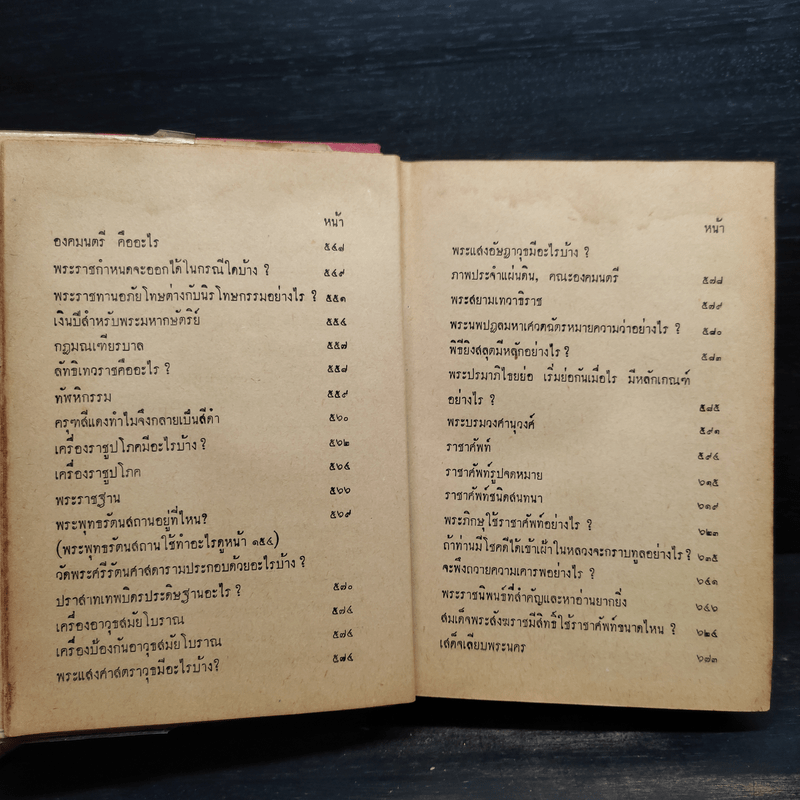 หน้า
องคมนตรี คืออะไร ๕๔๘
พระราชกำหนดจะออกได้ในกรณีใดบ้าง ? ๕๔๙
พระราชทานอภัยโทษต่างกับนิรโทษกรรมอย่างไร ? ๕๕๑
เงินปีสำหรับพระมหากษัตริย์ ๕๕๔
กฎมณเฑียรบาล ๕๕๗
ลัทธิเทวราชคืออะไร ? ๕๕๘
ทัฬหิกรรม ๕๕๙
ครุฑสีแดงทำไมจึงกลายเป็นสีดำ ๕๖๐
เครื่องราชูปโภคมีอะไรบ้าง ? ๕๖๒
เครื่องราชูปโภค ๕๖๔
พระราชฐาน ๕๖๖
พระพุทธรัตนสถานอยู่ที่ไหน? ๕๖๙
(พระพุทธรัตนสถานใช้ทำอะไรดูหน้า ๑๕๔)
วัดพระศรีรัตนศาสดารามประกอบด้วยอะไรบ้าง ?
ปราสาทเทพบิดรประดิษฐานอะไร ? ๕๗๐
เครื่องอาวุธสมัยโบราณ ๕๗๔
เครื่องป้องกันอาวุธสมัยโบราณ ๕๗๔
พระแสงศาสตราวุธมีอะไรบ้าง? ๕๗๔
หน้า
พระแสงอัษฎาวุธมีอะไรบ้าง ?
ภาพประจำแผ่นดิน, คณะองคมนตรี ๕๗๘
พระสยามเทวาธิราช ๕๗๙
พระนพปฎลมหาเศวตฉัตรหมายความว่าอย่างไร ? ๕๘๐
พิธียิงสลุตมีหลักอย่างไร ? ๕๘๓
พระปรมาภิไธยย่อ เริ่มย่อกันเมื่อไร มีหลักเกณฑ์
อย่างไร ? ๕๘๕
พระบรมวงศานุวงศ์ ๕๙๑
ราชาศัพท์ ๕๙๔
ราชาศัพท์รูปจดหมาย ๖๑๕
ราชาศัพท์ชนิดสนทนา ๖๑๙
พระภิกษุใช้ราชาศัพท์อย่างไร ? ๖๒๓
ถ้าท่านมีโชคดีได้เข้าเฝ้าในหลวงจะกราบทูลอย่างไร ? ๖๓๕
จะพึงถวายความเคารพอย่างไร ? ๖๔๑
พระราชนิพนธ์ที่สำคัญและหาอ่านยากยิ่ง ๖๔๖
สมเด็จพระสังฆราชมีสิทธิ์ใช้ราชาศัพท์ขนาดไหน ? ๖๒๔
เสด็จเลียบพระนคร ๖๗๓